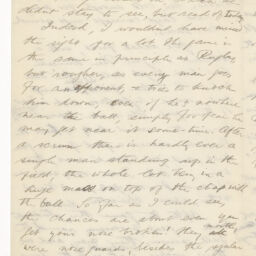 didn't stay to see, but read of
Indeed, I wouldn't have missed
the sight for a lot. The game is
the same in principle as Rugby,
but rougher, as every man goes
for an opponent, & tries to knock
him down, even if he is nowhere
near the ball, simply for fear he
may get near it some-time. After
a scrum there is hardly ever a
single man standing up in the
field, the whole lot being in a
huge mass on top of the chap with
the ball. So far as I could see,
the chances are about even you
get your nose broken! They all
wear nose guards, besides the